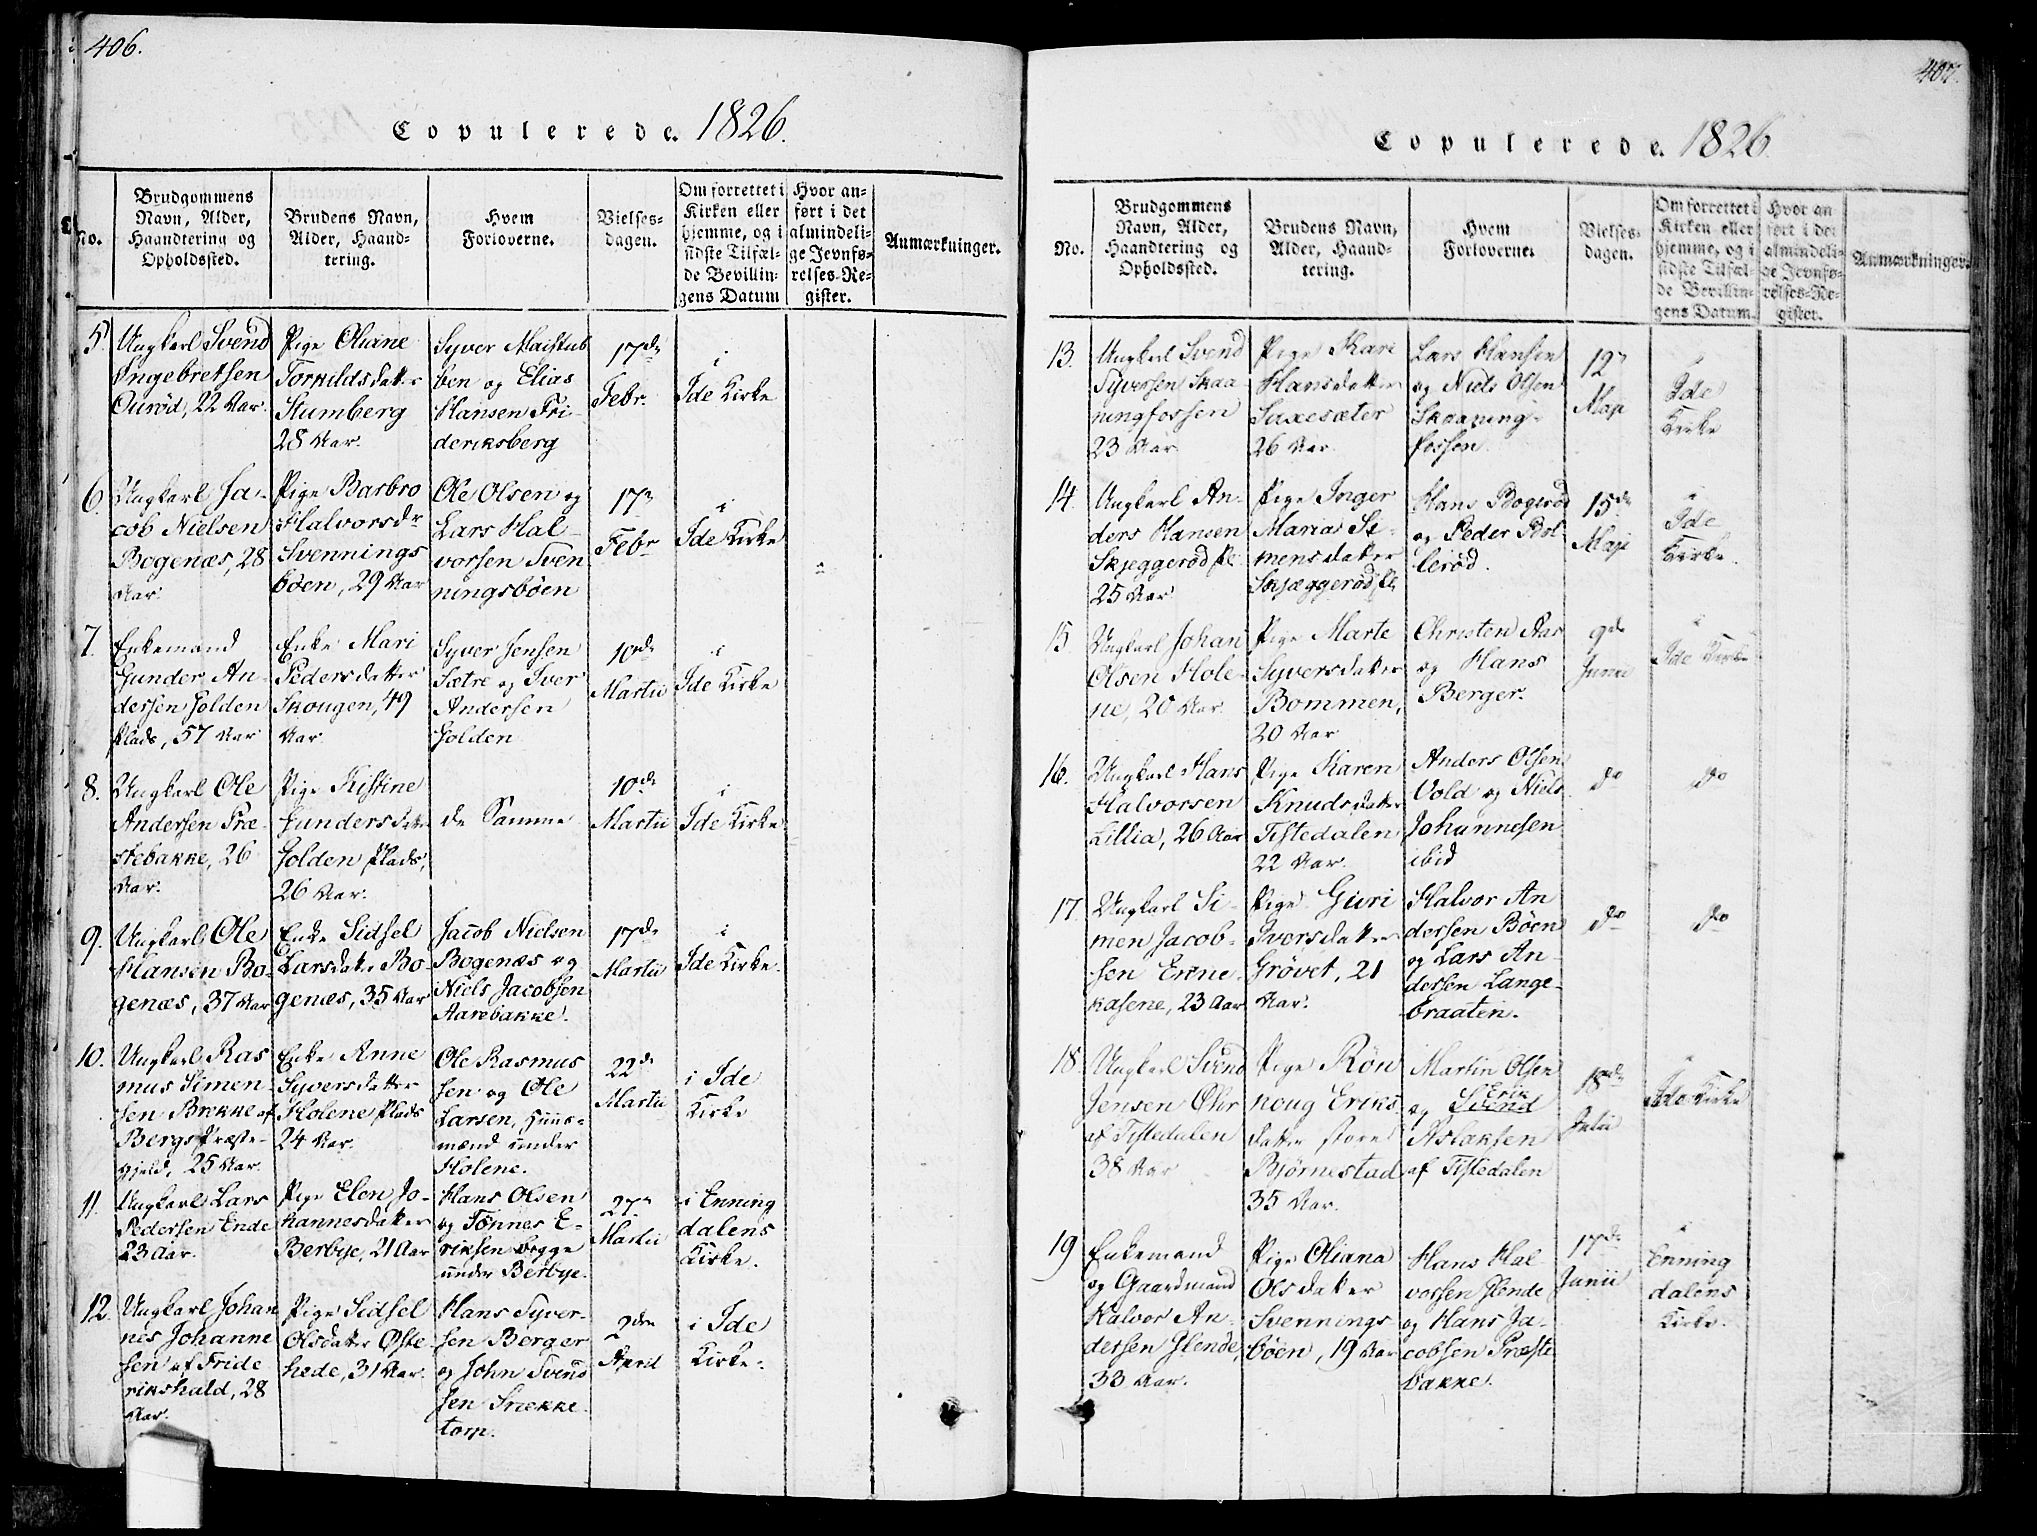 406.
Copulerede. 1826.
No.
Brudgommens
Navn, Alder,
Haandtering og
Opholdssted.
Brudens Navn,
Alder, Haand-
tering.
Hvem
Forloverne.
Vielses-
dagen.
Om forrettet i
Kirken eller
hjemme, og i
sidste Tilfæl-
de Bevillin-
gens Datum
Hvor an-
ført i det
almindeli-
ge Jevnfø-
relses-Re-
gister.
Anmærkninger.
5.
Ungkarl Svend
Ingebretsen
Ourød, 22 Aar.
Pige Oliane
Torkildsdatter
Stumberg
28 Aar.
Syver
og Elias
Hansen Fri-
deriksberg
17de
Febr.
i
Ide Kirke
6.
Ungkarl Ja-
cob Nielsen
Bogenæs, 28
Aar.
Pige Barbro
Halvorsdr
Svennings
böen, 29 Aar
Ole Olsen og
Lars Hal-
vorsen Sven
ningsböen
17de
Febr
i
Ide Kirke
7.
Enkemand
Gunder An-
dersen Holden
Plads, 57 Aar
Enke Mari
Pedersdatter
Skougen, 49
Aar.
Syver Jensen
Sætre og Iver
Andersen
Holden
10de
Martii
i
Ide Kirke
8.
Ungkarl Ole
Andersen Præ-
stebakke, 26
Aar.
Pige Kistine
Gundersdatter
Holden Plads,
26 Aar.
de Samme
10de
Martii
i
Ide Kirke
9.
Ungkarl Ole
Hansen Bo-
genæs, 37 Aar
Enke Sidsel
Larsdatter Bo-
genæs, 35 Aar
Jacob Nielsen
Bogenæs og
Niels Jacobsen
Aarebakke.
17de
Martii
i
Ide Kirke.
10.
Ungkarl Ras
mus Simen-
sen Brekke af
Bergs Præste-
gjeld, 25 Aar.
Enke Anne
Syversdatter
Holene Plads
24 Aar.
Ole Rasmus
sen og Ole
Larsen, Huus-
mænd under
Holene.
22de
Martii
i Ide
Kirke
11.
Ungkarl Lars
Pedersen Ende
23 Aar.
Pige Elen Jo-
hannesdatter
Berbye, 21 Aar
Hans Olsen
og Tönnes E-
riksen begge
under Berbye.
27de
Martii
i Enning
dalens
Kirke.
12.
Ungkarl Johan
nes Johanne
sen af Fride
rikshald, 28
Aar.
Pige Sidsel
Olsdatter Öste
hede, 31 Aar.
Hans Syver-
sen Berger
og John Svend
sen Srække-
torp.
2den
April
i Ide
Kirke.
407.
Copulerede. 1826.
No.
Brudgommens
Navn, Alder,
Haandtering og
Opholdssted.
Brudens Navn,
Alder, Haand-
tering.
Hvem
Forloverne.
Vielses-
dagen.
Om forrettet i
Kirken eller
hjemme, og i
sidste Tilfæl-
de Bevillin-
gens Datum.
Hvor an
ført i det
almindeli-
ge Jevnfø-
relses-Re-
gister.
Anmærkninger.
13.
Ungkarl Svend
Syversen Skaa
ningfossen
23 Aar
Pige Kari
Hansdatter
Saxesæter
26 Aar.
Lars Hansen
og Niels Olsen
Skaaning-
fossen.
12te
Maji
i
Ide
Kirke
14.
Ungkarl An-
ders Hansen
Skjeggerød Pl.
25 Aar
Pige Inger
Maria Si-
mensdatter
Skjæggerød Pl.
Hans Bogerød
og Peder Bot-
lerød.
15de
Maji
i
Ide
Kirke.
15
Ungkarl Johan
Olsen Hole-
ne, 20 Aar.
Pige Marte
Syversdatter
Bommen,
20 Aar
Christen Aas
og Hans
Berger.
9de
Junii
i
Ide Kirke
16.
Ungkarl Hans
Halvorsen
Lillia, 26 Aar
Pige Karen
Knudsdatter
Tistedalen
22 Aar.
Anders Olsen
Vold og Niels
Johannesen
ibid
do
do
17
Ungkarl Si-
men Jacob-
sen Enne-
kasene, 23 Aar
Pige Guri
Iversdatter
Grövet, 21
Aar.
Halvor An
dersen Böen
og Lars An-
dersen Lange-
braaten.
do
do
18
Ungkarl Svend
Jensen Öhr
af Tistedalen
38 Aar
Pige Rön
noug Eriks
datter store
Björnestad
35 Aar.
Martin Olsen
Erik
og Svend
Aslaksen
af Tistedalen
18de
Julii
i
Ide Kirke
19
Enkemand
og Gaardmand
Halvor An-
dersen Hende,
33 Aar.
Pige Oliana
Olsdatter
Svennings
böen, 19 Aar
Hans Hal-
vorsen Hende
og Hans Ja-
cobsen Præste
bakke.
17de
Junii
i
Enning
dalens
Kirke.